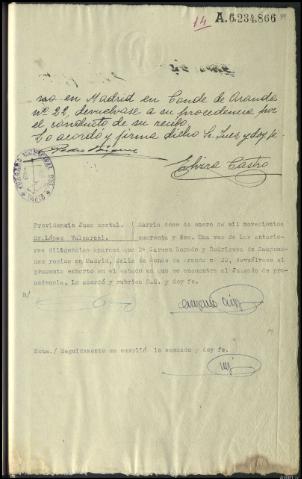 14
A.6.234.866
en Madrid en Conde de Aranda
nº 22, devuelvase a su procedencia por
el conducto de su recibo.
Lo acordó y firma dicho Sr. Juez doy fe.
Elvira Castro
Providencia Juez
Sarria once de enero de mil novecientos
Sr. López Valcarcel.
cuarenta y dos. Una vez de las anterio-
res diligencias aparece que Dª Carmen y Rodriguez de
reside en Madrid, calle de Conde de Aranda nº 22, devuélvase el
presente exhorto en el estado en que se encuentra al Juzgado de pro-
cedencia. Lo acordó y rubrica S.S. doy fe.
Nota./ Seguidamente se cumplió lo mandado doy fe.